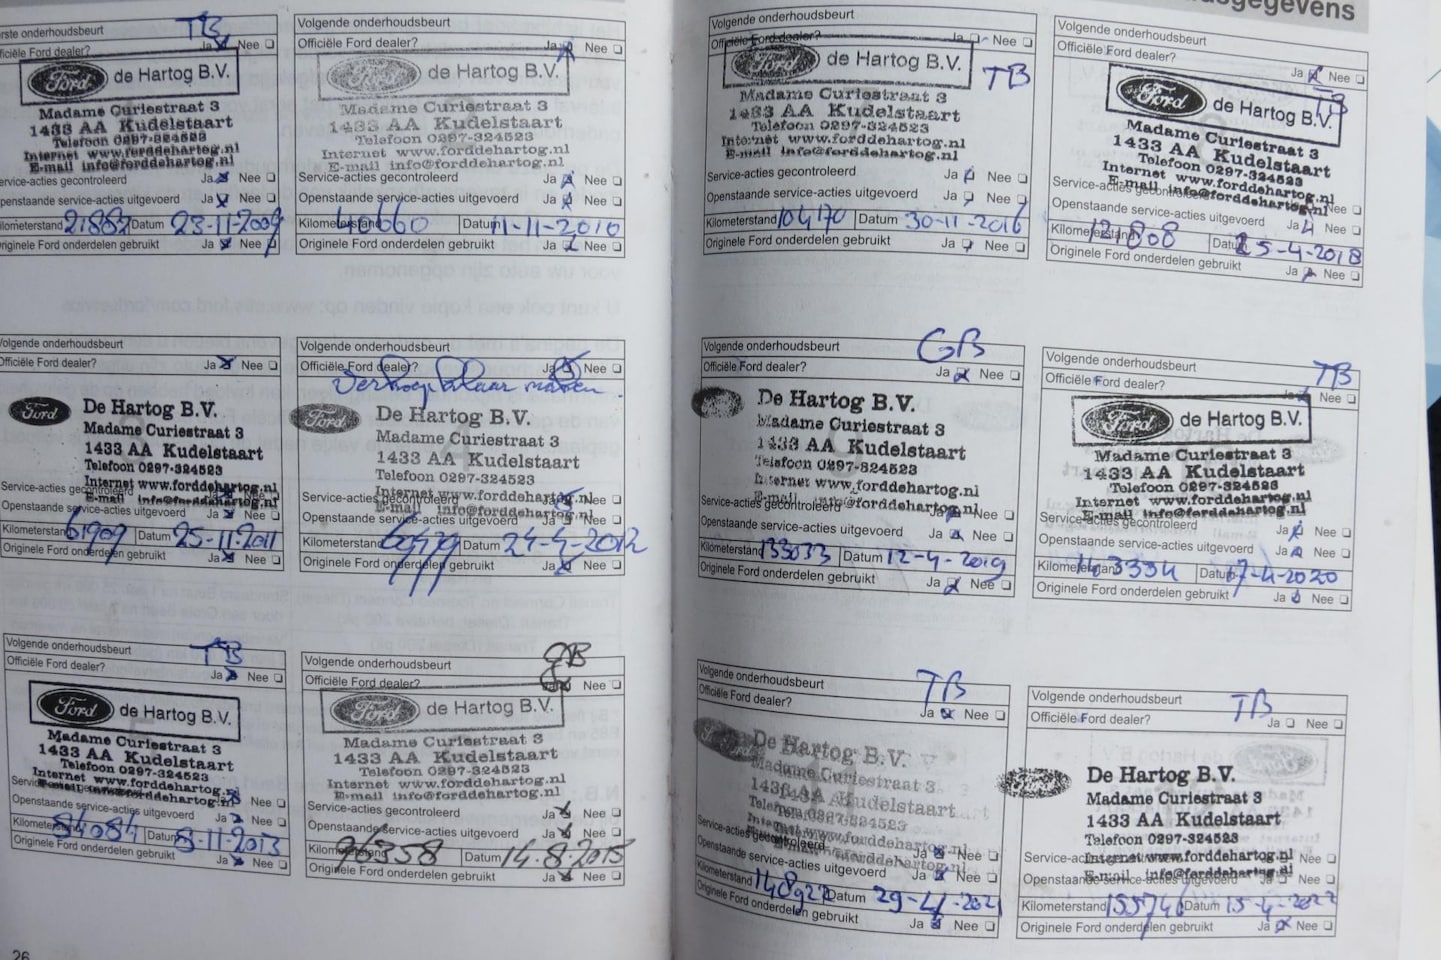 erste onderhoudsbeurt TB
fficiële Ford dealer? Ja Nee
Ford de Hartog B.V.
Madame Curiestraat 3
1433 AA Kudelstaart
Telefoon 0297-324523
Internet www.forddehartog.nl
E-mail info@forddehartog.nl
ervice-acties gecontroleerd Ja Nee
penstaande service-acties uitgevoerd Ja Nee
ilometerstand 21882 Datum 23-11-2009
riginele Ford onderdelen gebruikt Ja Nee
Volgende onderhoudsbeurt
Officiële Ford dealer? Ja Nee
Ford de Hartog B.V.
Madame Curiestraat 3
1433 AA Kudelstaart
Telefoon 0297-324523
Internet www.forddehartog.nl
E-mail info@forddehartog.nl
Service-acties gecontroleerd Ja Nee
Openstaande service-acties uitgevoerd Ja Nee
Kilometerstand 40660 Datum 11-11-2010
Originele Ford onderdelen gebruikt Ja Nee
Volgende onderhoudsbeurt
Officiële Ford dealer? Ja Nee
Ford De Hartog B.V.
Madame Curiestraat 3
1433 AA Kudelstaart
Telefoon 0297-324523
Internet www.forddehartog.nl
E-mail info@forddehartog.nl
Service-acties gecontroleerd
Openstaande service-acties uitgevoerd Ja Nee
Kilometerstand 61909 Datum 25-11-2011
Originele Ford onderdelen gebruikt Ja Nee
Volgende onderhoudsbeurt
Officiële Ford dealer? Ja Nee
Ford De Hartog B.V.
Madame Curiestraat 3
1433 AA Kudelstaart
Telefoon 0297-324523
Internet www.forddehartog.nl
E-mail info@forddehartog.nl
Service-acties gecontroleerd Ja Nee
Openstaande service-acties uitgevoerd Ja Nee
Kilometerstand Datum 24-4-2012
Originele Ford onderdelen gebruikt Ja Nee
Volgende onderhoudsbeurt TB
Officiële Ford dealer? Ja Nee
Ford de Hartog B.V.
Madame Curiestraat 3
1433 AA Kudelstaart
Telefoon 0297-324523
Internet www.forddehartog.nl
E-mail info@forddehartog.nl
Nee
Openstaande service-acties uitgevoerd Ja Nee
Kilometerstand 84084 Datum 8-11-2013
Originele Ford onderdelen gebruikt Ja Nee
Volgende onderhoudsbeurt GB
Officiële Ford dealer? Ja Nee
Ford de Hartog B.V.
Madame Curiestraat 3
1433 AA Kudelstaart
Telefoon 0297-324523
Internet www.forddehartog.nl
E-mail info@forddehartog.nl
Service-acties gecontroleerd Ja Nee
Openstaande service-acties uitgevoerd Ja Nee
Kilometerstand 96358 Datum 14-8-2015
Originele Ford onderdelen gebruikt Ja Nee
26
gegevens
Volgende onderhoudsbeurt
Officiële Ford dealer? Ja Nee
Ford de Hartog B.V. TB
Madame Curiestraat 3
1433 AA Kudelstaart
Telefoon 0297-324523
Internet www.forddehartog.nl
E-mail info@forddehartog.nl
Service-acties gecontroleerd Ja Nee
Openstaande service-acties uitgevoerd Ja Nee
Kilometerstand 104170 Datum 30-11-2016
Originele Ford onderdelen gebruikt Ja Nee
Volgende onderhoudsbeurt
Officiële Ford dealer? Ja Nee
TB
Ford de Hartog B.V.
Madame Curiestraat 3
1433 AA Kudelstaart
Telefoon 0297-324523
Internet www.forddehartog.nl
E-mail info@forddehartog.nl
Service-acties gecontroleerd Nee
Openstaande service-acties uitgevoerd Ja Nee
Kilometerstand 121808 Datum 25-4-2018
Originele Ford onderdelen gebruikt Ja Nee
Volgende onderhoudsbeurt GB
Officiële Ford dealer? Ja Nee
De Hartog B.V.
Madame Curiestraat 3
1433 AA Kudelstaart
Telefoon 0297-324523
Internet www.forddehartog.nl
E-mail info@forddehartog.nl
Service-acties gecontroleerd Ja Nee
Openstaande service-acties uitgevoerd Ja Nee
Kilometerstand 133033 Datum 12-4-2019
Originele Ford onderdelen gebruikt Ja Nee
Volgende onderhoudsbeurt TB
Officiële Ford dealer? Ja Nee
Ford de Hartog B.V.
Madame Curiestraat 3
1433 AA Kudelstaart
Telefoon 0297-324523
Internet www.forddehartog.nl
E-mail info@forddehartog.nl
Service-acties gecontroleerd Ja Nee
Openstaande service-acties uitgevoerd Ja Nee
Kilometerstand 143334 Datum 17-4-2020
Originele Ford onderdelen gebruikt Ja Nee
Volgende onderhoudsbeurt TB
Officiële Ford dealer? Ja Nee
Ford De Hartog B.V.
Madame Curiestraat 3
1433 AA Kudelstaart
Telefoon 0297-324523
Internet www.forddehartog.nl
E-mail info@forddehartog.nl
Service-acties gecontroleerd Ja Nee
Openstaande service-acties uitgevoerd Ja Nee
Kilometerstand Datum 29-4-2021
Originele Ford onderdelen gebruikt Ja Nee
Volgende onderhoudsbeurt TB
Officiële Ford dealer? Ja Nee
Ford De Hartog B.V.
Madame Curiestraat 3
1433 AA Kudelstaart
Telefoon 0297-324523
Internet www.forddehartog.nl
E-mail info@forddehartog.nl
Nee
Openstaande service-acties uitgevoerd Nee
Kilometerstand 155746 Datum 15-4-2022
Originele Ford onderdelen gebruikt Ja Nee